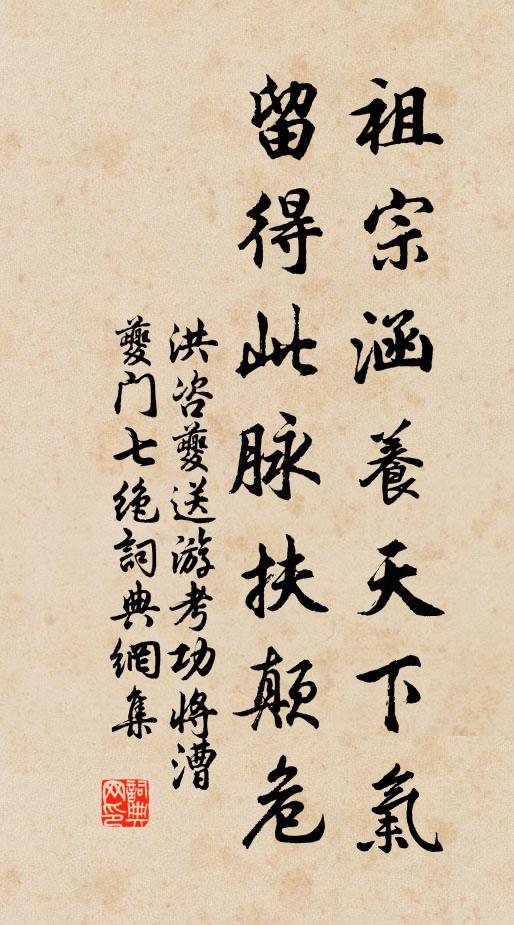 祖宗涵養天下氣
留得此脉扶顛危
洪咨夔送游考功將漕
夔门七绝詞典網集
詞典
网印